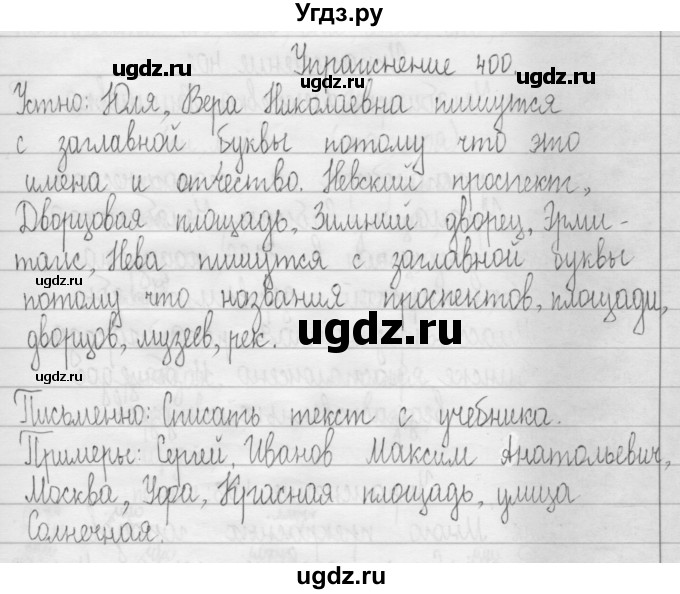 Угдз.ру
Упражнение 400.
ugdz.ru ugdz.ru
Устно: Юля, Вера Николаевна пишутся
с заглавной буквы потому что это
имена и отчество. Невский проспект,
Дворцовая площадь, Зимний дворец, Эрми-
таж, Нева пишутся с заглавной буквы
ugdz.ru
потому что названия проспектов, площади,
дворцов, музеев, рек.
ugdz.ru
ugdz.ru
Письменно: Списать текст с учебника.
Примеры: Сергей, Иванов Максим Анатольевич,
Москва, Уфа, Красная площадь, улица
ugdz.ru ugdz.ru
Солнечная.
ugdz.ru